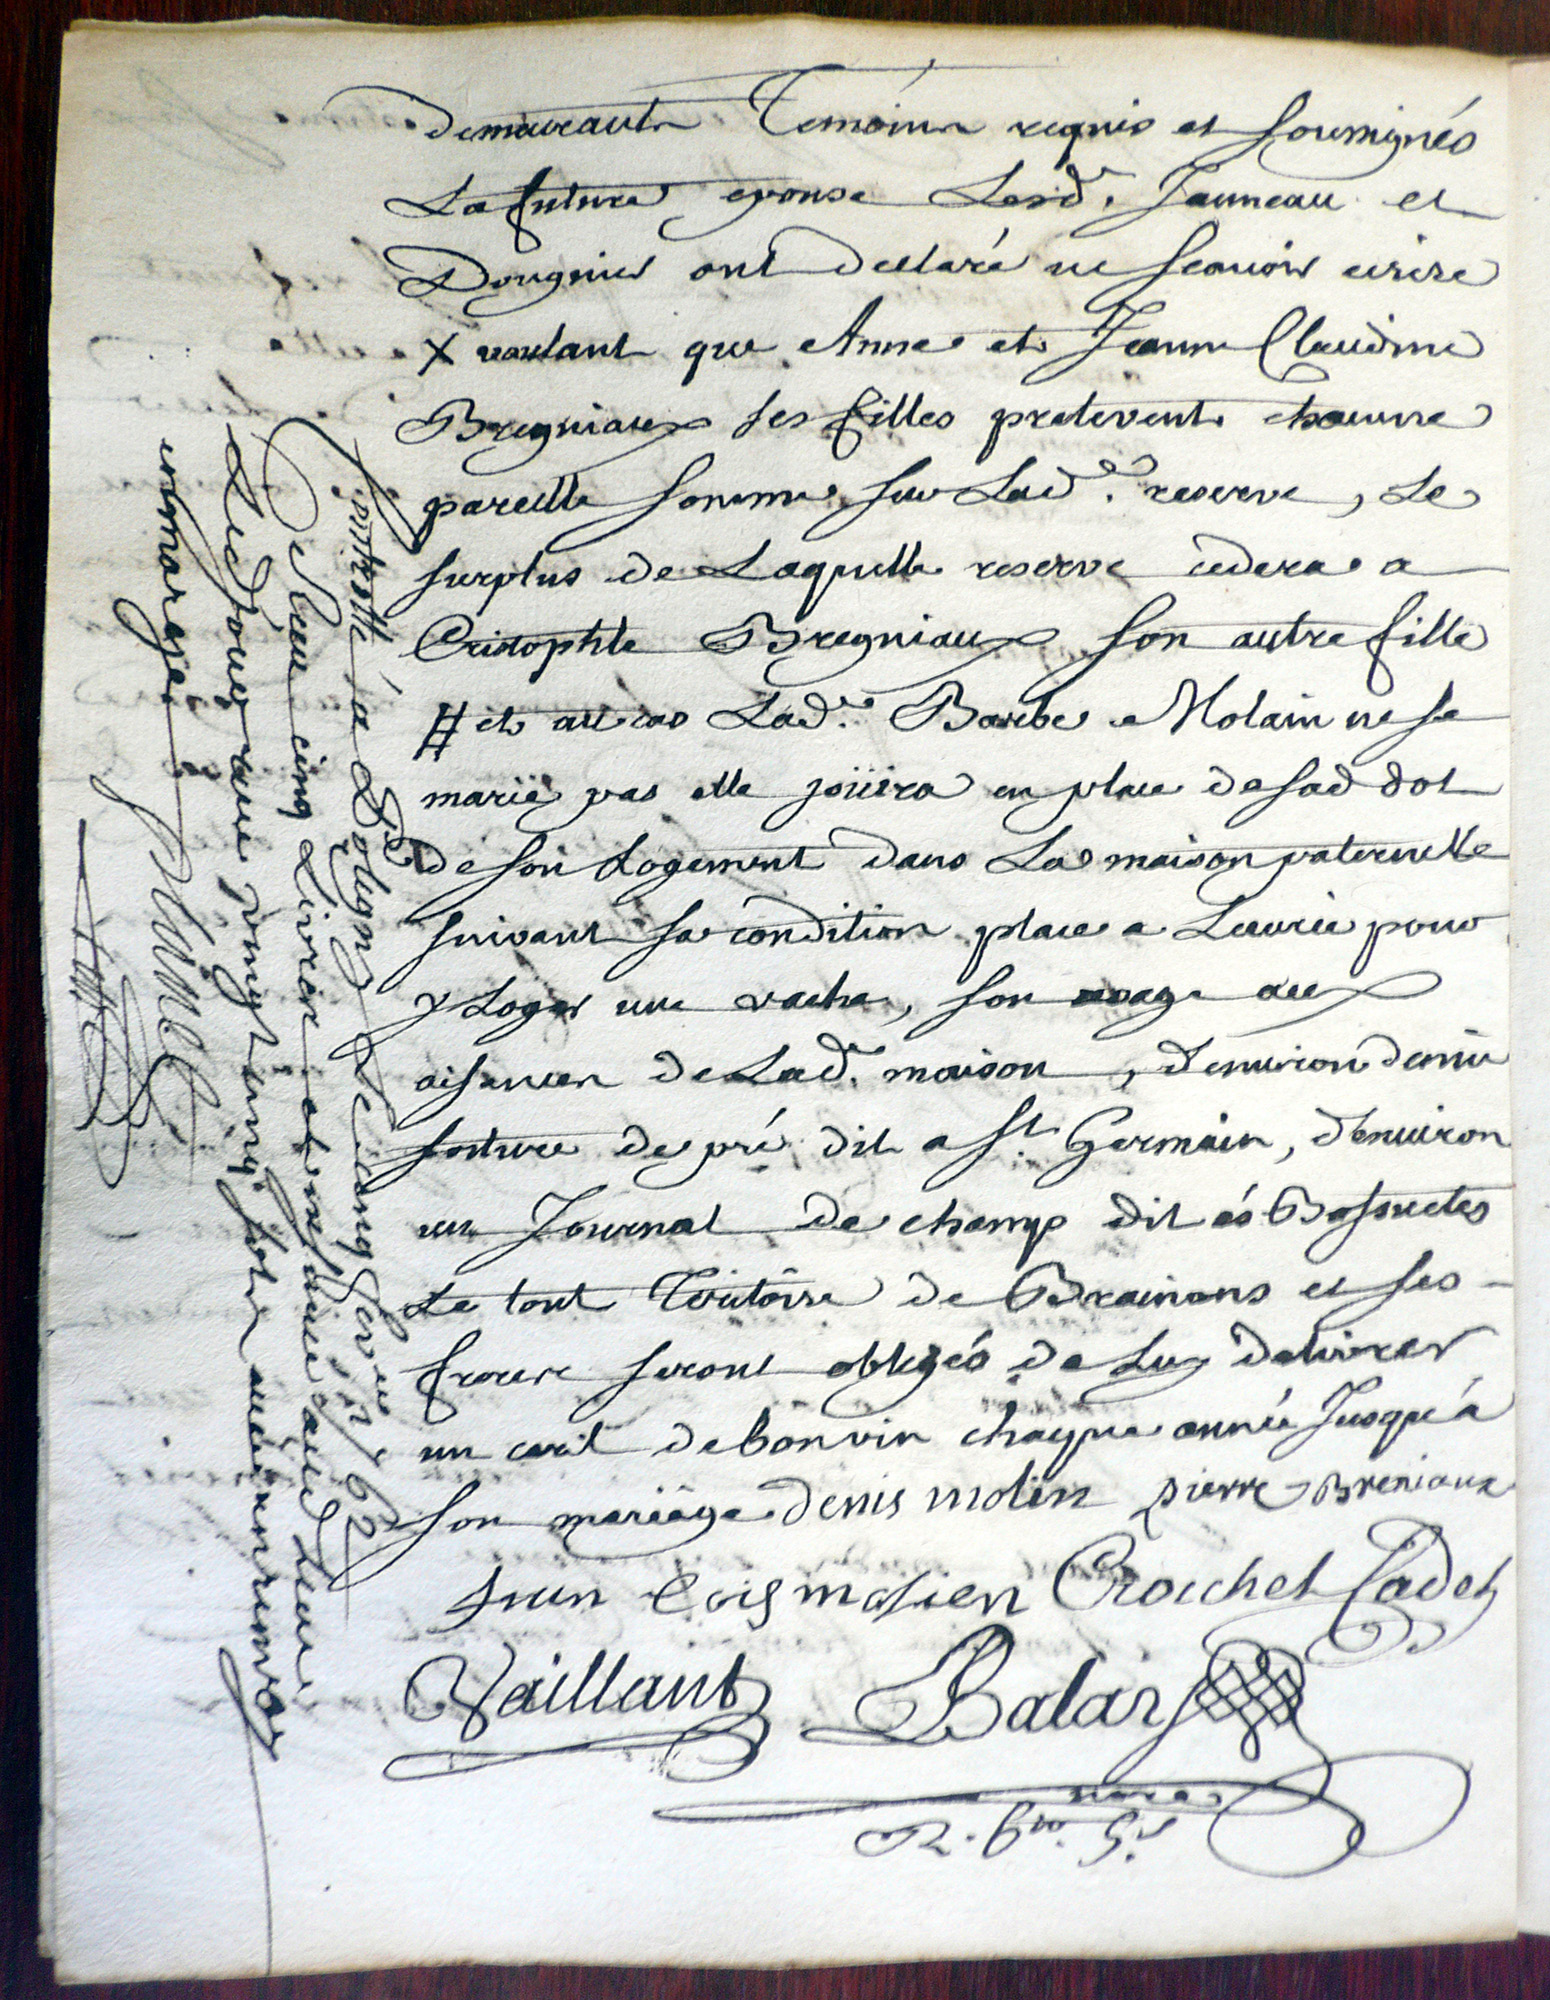 demeurants Temoins requis et soussignés
La future epouse Lesd. Jauneau et
Dougnier ont declaré ne scavoir ecrire
X voulant que Anne et Jeanne Claudine
Bregniaux ses filles prelevent chacune
pareille somme sur Lad.e reserve, Le
surplus de Laquelle reserve cedera a
Cristophle Bregniaux son autre fille
# et au cas Lad.e Barbe Molain ne se
marie pas elle joüira en place de sad dot
de son Logement dans La maison paternelle
suivant sa condition place a Leurie pour
y Loger une vache, son usage aux
aisances de Lad.e maison, d'environ demie
soiture de pré dit a St Germain, d'environ
un Journal de champ dit és
Le tout Territoire de Brainans et ses
freres seront obligés de Luy delivrer
un de bon vin chaque année Jusqu'à
son mariage denis molin pierre Breniaux
molien Crouchet Cadet
Vaillant Balar
nore
R. 6
Controllé a Poligny Le cinq 62
Reçu cinq Livres
et
emargé